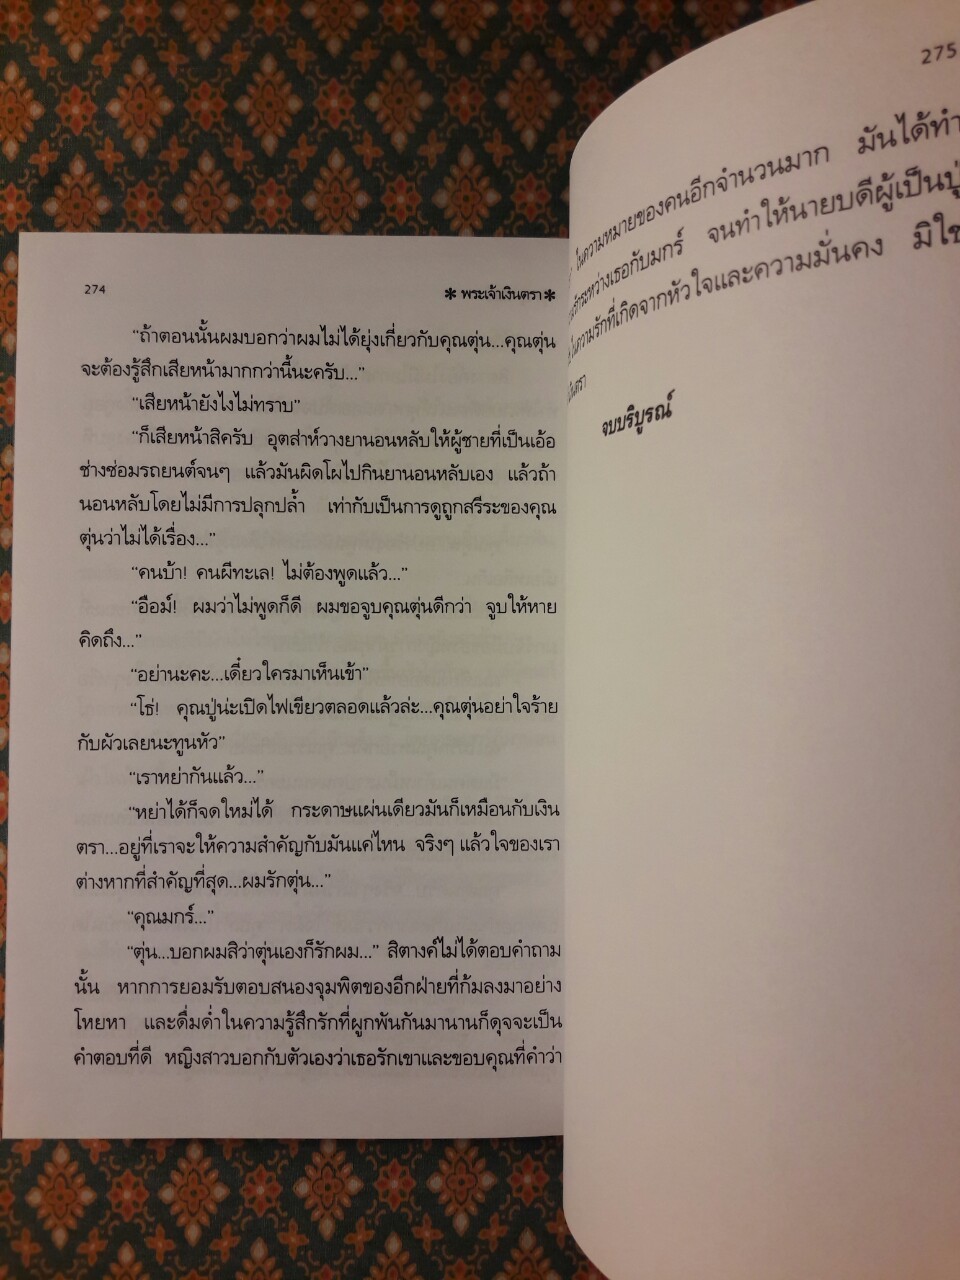 274
✻ พระเจ้าเงินตรา ✻
“ถ้าตอนนั้นผมบอกว่าผมไม่ได้ยุ่งเกี่ยวกับคุณตุ่น...คุณตุ่น
จะต้องรู้สึกเสียหน้ามากกว่านี้นะครับ...”
“เสียหน้ายังไงไม่ทราบ”
“ก็เสียหน้าสิครับ อุตส่าห์วางยานอนหลับให้ผู้ชายที่เป็นเอ้อ
ช่างซ่อมรถยนต์จนๆ แล้วมันผิดโผไปกินยานอนหลับเอง แล้วถ้า
นอนหลับโดยไม่มีการปลุกปล้ำ เท่ากับเป็นการดูถูกสรีระของคุณ
ตุ่นว่าไม่ได้เรื่อง...”
“คนบ้า! คนผีทะเล! ไม่ต้องพูดแล้ว...”
“อือม์! ผมว่าไม่พูดก็ดี ผมขอจูบคุณตุ่นดีกว่า จูบให้หาย
คิดถึง...”
“อย่านะคะ...เดี๋ยวใครมาเห็นเข้า”
“โธ่! คุณปู่น่ะเปิดไฟเขียวตลอดแล้วล่ะ...คุณตุ่นอย่าใจร้าย
กับผัวเลยนะทูนหัว”
“เราหย่ากันแล้ว...”
“หย่าได้ก็จดใหม่ได้ กระดาษแผ่นเดียวมันก็เหมือนกับเงิน
ตรา...อยู่ที่เราจะให้ความสำคัญกับมันแค่ไหน จริงๆ แล้วใจของเรา
ต่างหากที่สำคัญที่สุด...ผมรักตุ่น...”
“คุณมกร์...”
“ตุ่น...บอกผมสิว่าตุ่นเองก็รักผม...” สิตางค์ไม่ได้ตอบคำถาม
นั้น หากการยอมรับตอบสนองจุมพิตของอีกฝ่ายที่ก้มลงมาอย่าง
โหยหา และดื่มด่ำในความรู้สึกรักที่ผูกพันกันมานานก็ดุจจะเป็น
คำตอบที่ดี หญิงสาวบอกกับตัวเองว่าเธอรักเขาและขอบคุณที่คำว่า
275
ในความหมายของคนอีกจำนวนมาก มันได้ทำ
ระหว่างเธอกับมกร์ จนทำให้นายบดีผู้เป็นปู่
ในความรักที่เกิดจากหัวใจและความมั่นคง มิใช่
จบบริบูรณ์